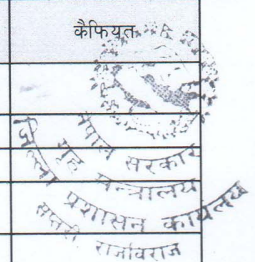 कैफियत
नेपाल सरकार
गृह मन्त्रालय
जिल्ला प्रशासन कार्यालय
सप्तरी राजविराज